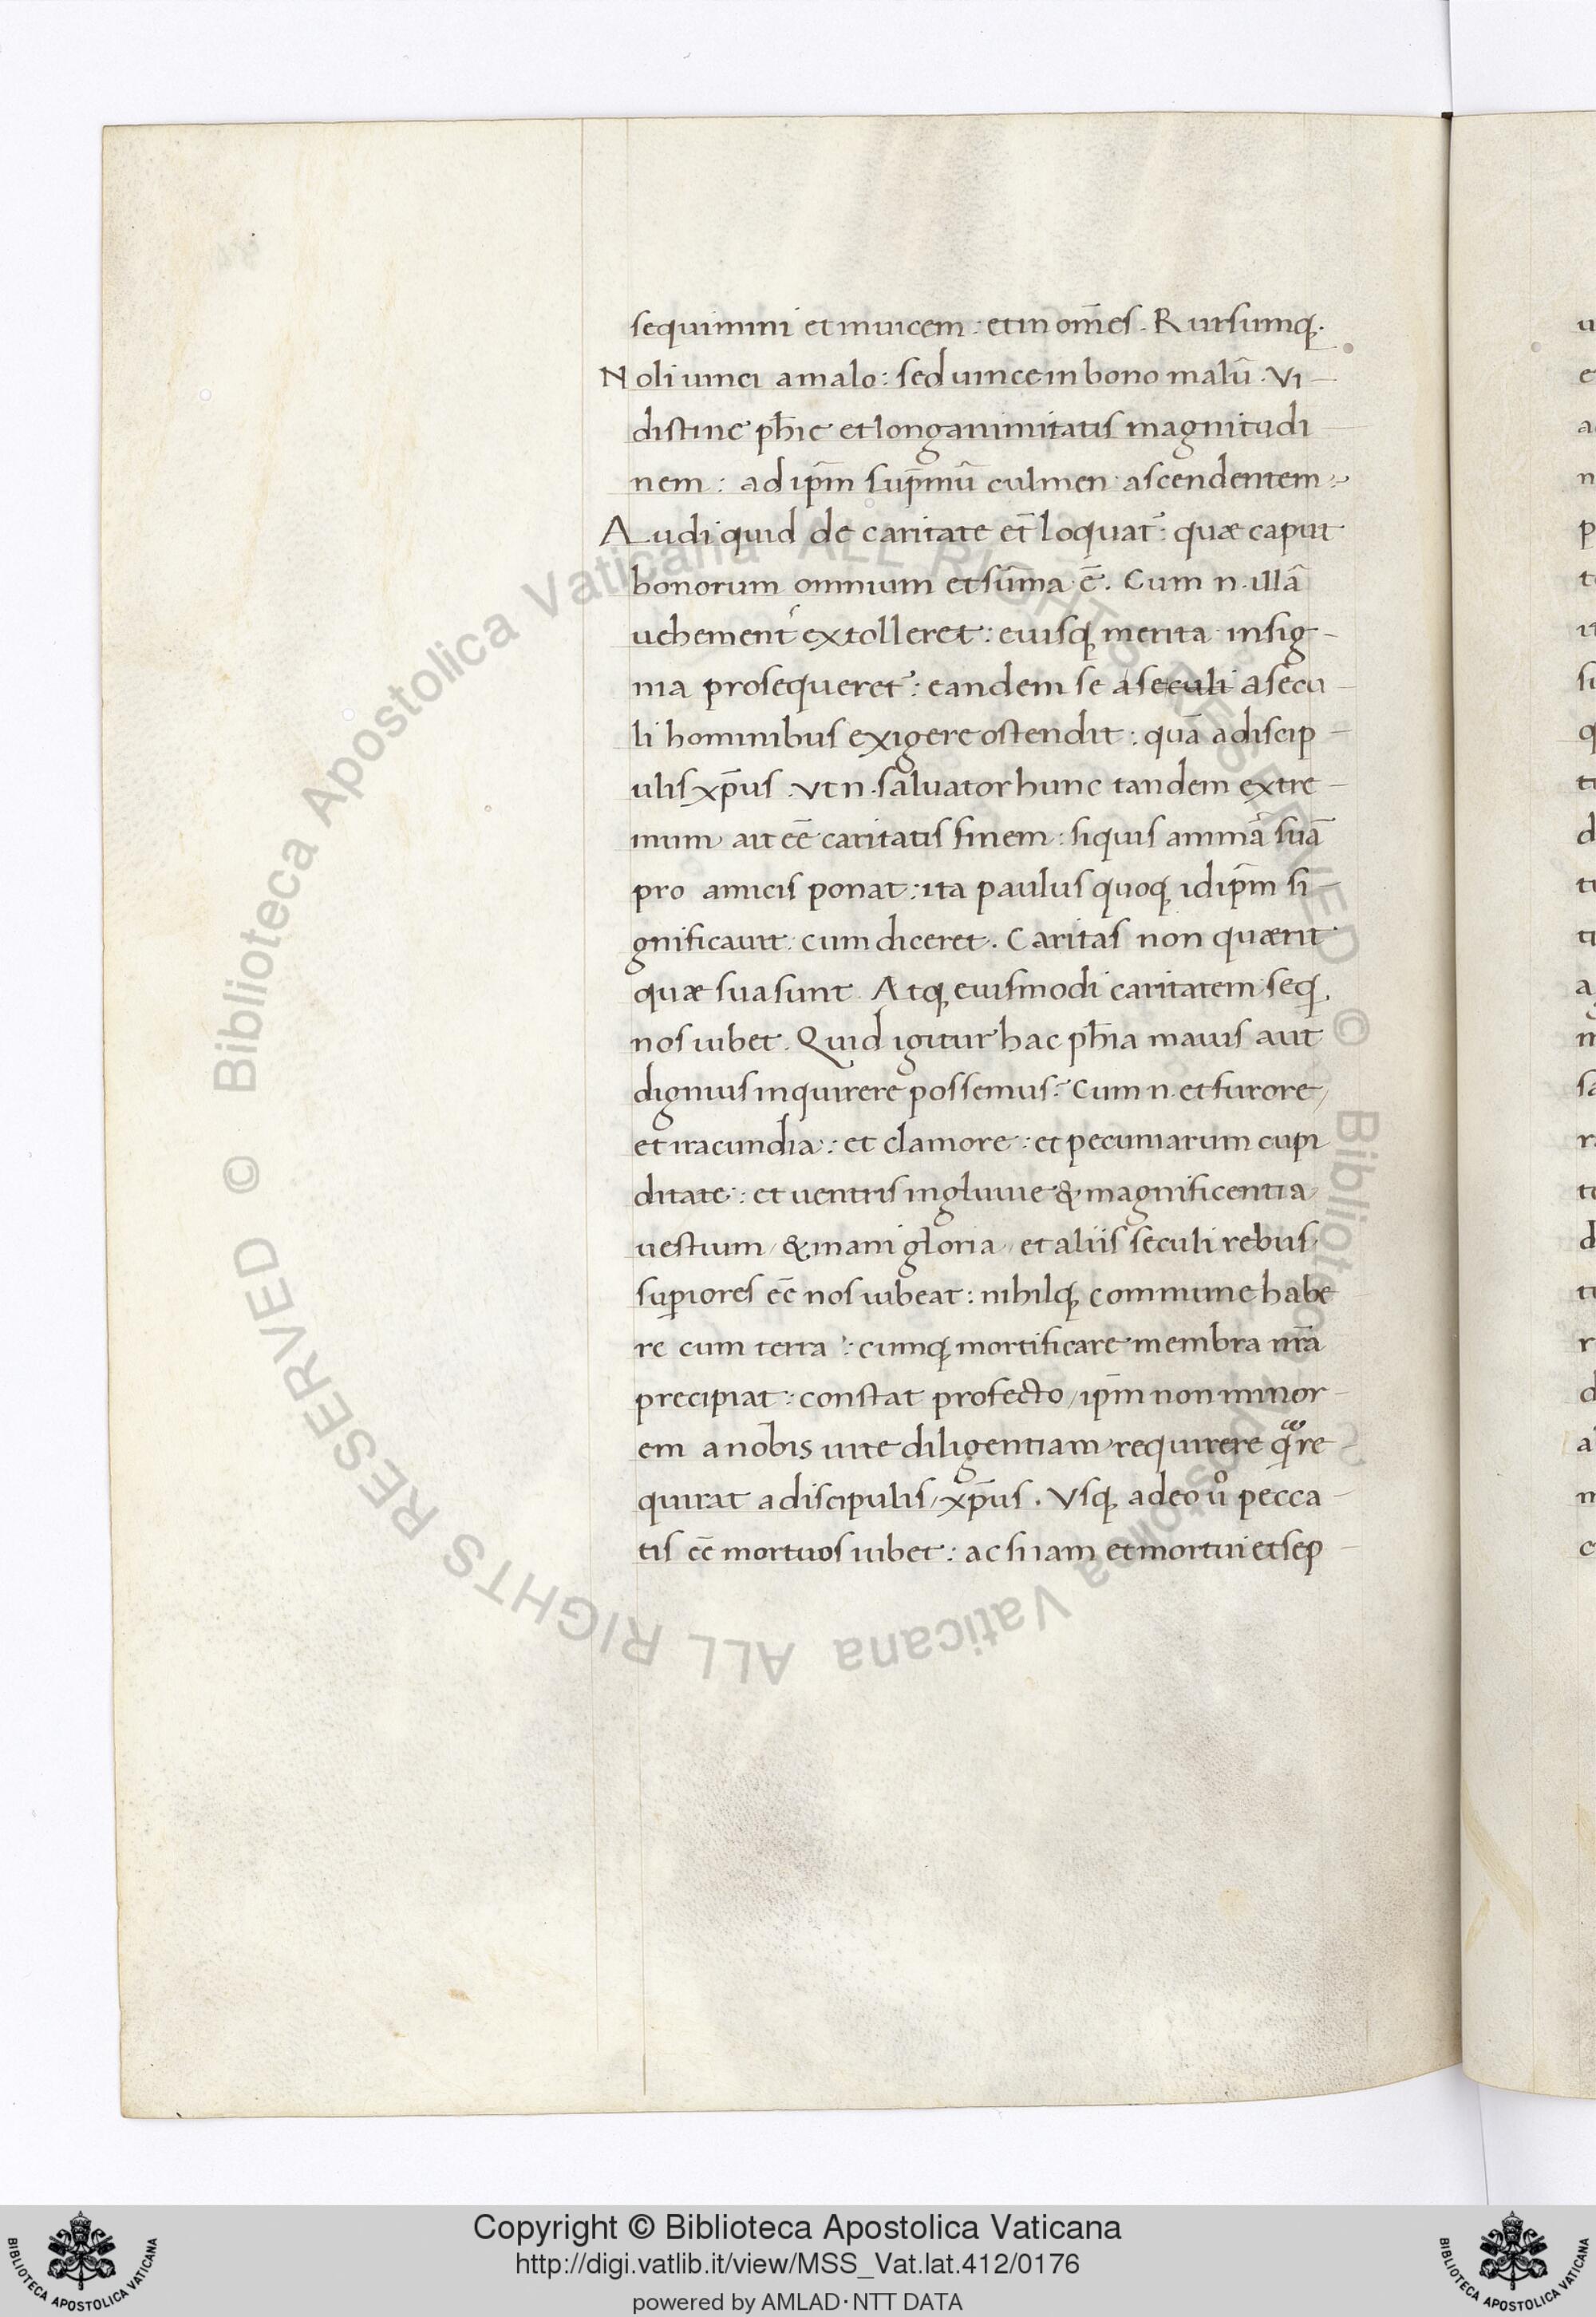 sequimini et inuicem: et in om̄es. Rursumq;.
Noli uinci a malo: sed uince in bono malū. Vi
distine ph̄ie et longanimitatis magnitudi
nem: ad ip̄m sup̄mū culmen ascendentem:
Audi quid de caritate et̄ loquat̄: quæ caput
bonorum omnium et sūma ē. Cum n. illā
uehement' extolleret: euisq; merita insig-
nia prosequeret̄: eandem se a seculi a secu
li hominibus exigere ostendit: quā a discip
ulis xp̄us. Vt n. saluator hunc tandem extre
mum ait eē caritatis finem: siquis animā suā
pro amicis ponat: ita paulus quoq; id ip̄m si-
gnificauit: cum diceret. Caritas non quærit
quæ sua sunt. Atq; euismodi caritatem seq;
nos iubet. Quid igitur hac ph̄ia maius aut
dignius inquirere possemus? Cum n. et furore,
et iracundia: et clamore: et pecuniarum cupi
ditate: et uentris ingluuie & magnificentia
uestium, & inani gloria, et aliis seculi rebus
sup̱iores eē nos iubeat: nihilq; commune habe
re cum terra: cumq; mortificare membra nr̄a
precipiat: constat profecto, ip̄m non minor
em a nobis uite diligentiam requirere q̃ re
quirat a discipulis, xp̄us. Vsq; adeo uͦ pecca
tis eē mortuos iubet: ac si iam et mortui et sep
Copyright © Biblioteca Apostolica Vaticana
http://digi.vatlib.it/view/MSS_Vat.lat.412/0176
powered by AMLAD·NTT DATA